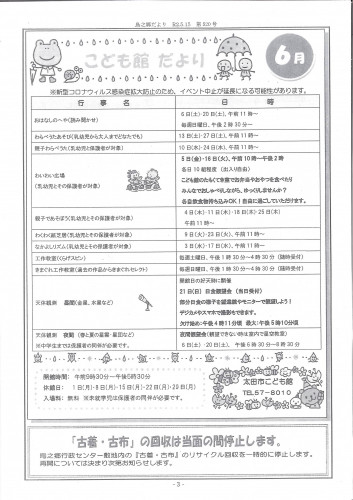 鳥之郷だより R2.5.15 第320号
こども館 だより
6月
※新型コロナウィルス感染症拡大防止のため、イベント中止が延長になる可能性があります。
行事名 日時
おはなしのへや(読み聞かせ) 6日(土)・20日(土)、午前11時～
毎週日曜日、午後2時30分～
わらべうたあそび(乳幼児から大人までどなたでも) 13日(土)・27日(土)、午前11時～
親子わらべうた(乳幼児とその保護者が対象) 10日(水)・24日(水)、午前11時～
わいわい広場
(乳幼児とその保護者が対象)
5日(金)・16日(火)、午前10時～午後2時
各日10組程度 (出入り自由)
こども館のたもくて木育でお弁当やおやつを食べたり
みんなでおしゃべりしながら、ゆっくりしませんか?
各自飲食物持ち込みOK!自由に過ごしていただけます。
親子であそぼう(乳幼児とその保護者が対象) 4日(木)・11日(木)・18日(木)・25日(木)
午前11時～
わくわく紙芝居(乳幼児とその保護者が対象) 9日(火)・23日(火)、午前11時～
なかよしリズム(乳幼児とその保護者が対象) 3日(水)・17日(水)、午前11時～
工作教室 毎週土曜日、午後1時30分～4時30分(随時受付)
きまぐれ工作教室(過去の作品からきまぐれセレクト) 毎週日曜日、午後1時30分～4時30分(随時受付)
天体観測 昼間(金星、木星など)
開館日の好天時に開催
21日(日)日食観望会(当日受付)
部分日食の様子を望遠鏡やモニターで観望しよう!
デジカメやスマホで撮影もできます。
欠け始め:午後4時11分頃 最大:午後5時10分頃
天体観測 夜間(春と夏の星座・星団など)
※中学生までは保護者の同伴が必要です。
夜間観望会(観望できない時は室内で星空教室)
6日(土)・20日(土)、午後6時30分～
開館時間: 午前9時30分～午後5時30分
休館日: 1日(月)・8日(月)・15日(月)・22日(月)・29日(月)
入場料: 無料 ※未就学児は保護者の同伴が必要です。
太田市こども館
TEL57-8010
「古着・古布」の回収は当面の間停止します。
鳥之郷行政センター敷地内の『古着・古布』のリサイクル回収を一時的に停止します。
再開については決まり次第お知らせします。
- 3 -